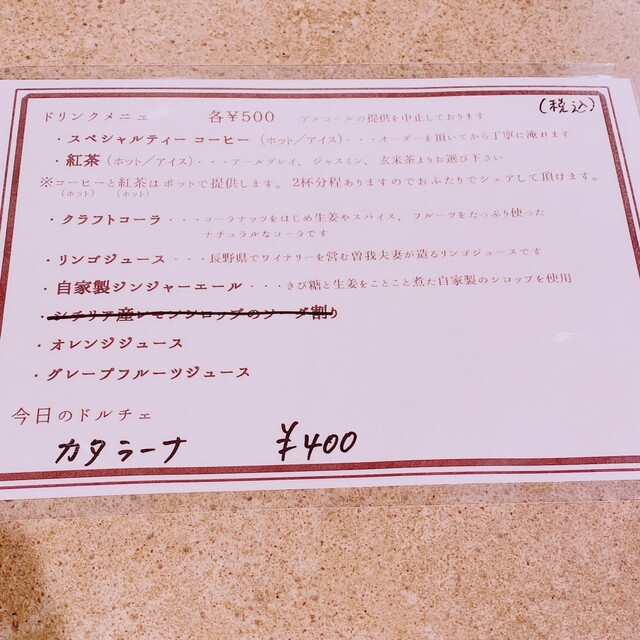 (税込)
ドリンクメニュー 各¥500 アルコールの提供を中止しております
・スペシャルティー コーヒー (ホット/アイス)・・・オーダーを頂いてから丁寧に淹れます
・紅茶 (ホット/アイス)・・・アールグレイ、ジャスミン、玄米茶よりお選び下さい
※コーヒーと紅茶はポットで提供します。2杯分程ありますのでおふたりでシェアして頂けます。
(ホット) (ホット)
・クラフトコーラ・・・コーラナッツをはじめ生姜やスパイス、フルーツをたっぷり使った
ナチュラルなコーラです
・リンゴジュース ・・・長野県でワイナリーを営む曽我夫妻が造るリンゴジュースです
・自家製ジンジャーエール・・・きび糖と生姜をことこと煮た自家製のシロップを使用
・シチリア産レモンシロップのソーダ割り
・オレンジジュース
・グレープフルーツジュース
今日のドルチェ
カタラーナ ¥400